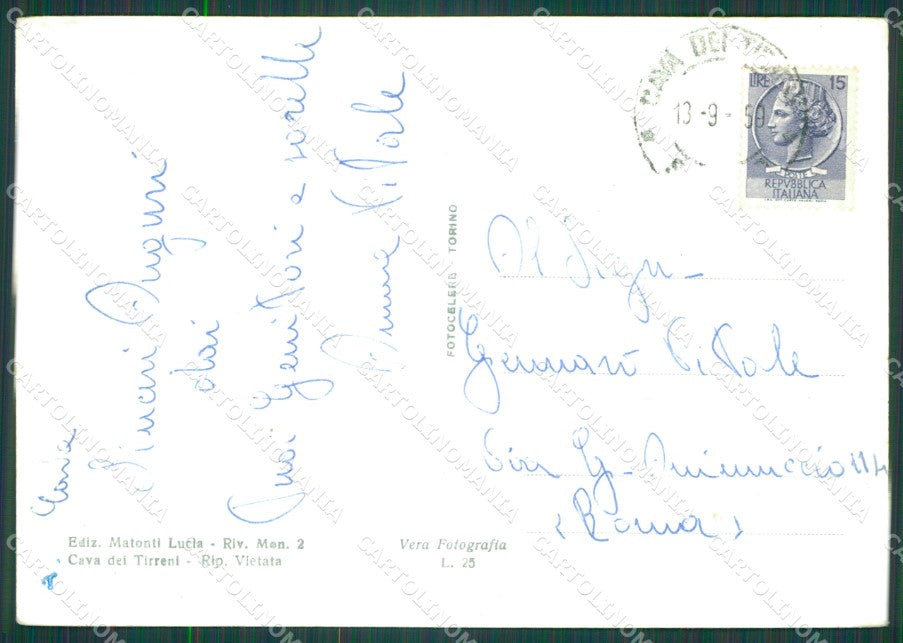 Cava
Sinceri Auguri
dai
tuoi Genitori e sorelle
Anna Vitale
Ediz. Matonti Lucia - Riv. Mon. 2
Cava dei Tirreni - Rip. Vietata
Vera Fotografia
L. 25
FOTOCELERE TORINO
CAVA DEI TIRRENI
13-9-59
LIRE 15
POSTE
REPVBBLICA
ITALIANA
Al Sign.
Gennaro Vitale
Via G. Minuccio 114
(Roma)
CARTOLINOMANIA